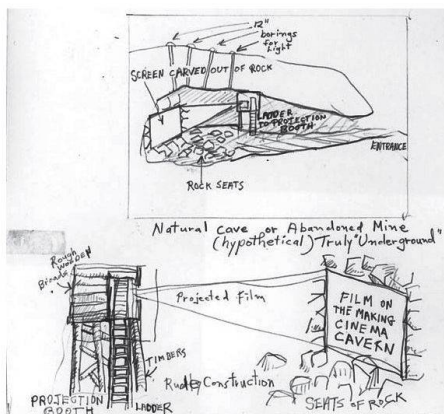 12"
borings
for
Light
SCREEN CARVED OUT OF ROCK
LADDER
TO PROJECTION
BOOTH
ENTRANCE
ROCK SEATS
Natural cave or Abandoned Mine
(hypothetical) Truly "Underground"
Rough
Wooden
Projected Film
FILM ON
THE MAKING
CINEMA
CAVERN
TIMBERS
Rude Construction
PROJECTION
BOOTH
LADDER
SEATS OF ROCK